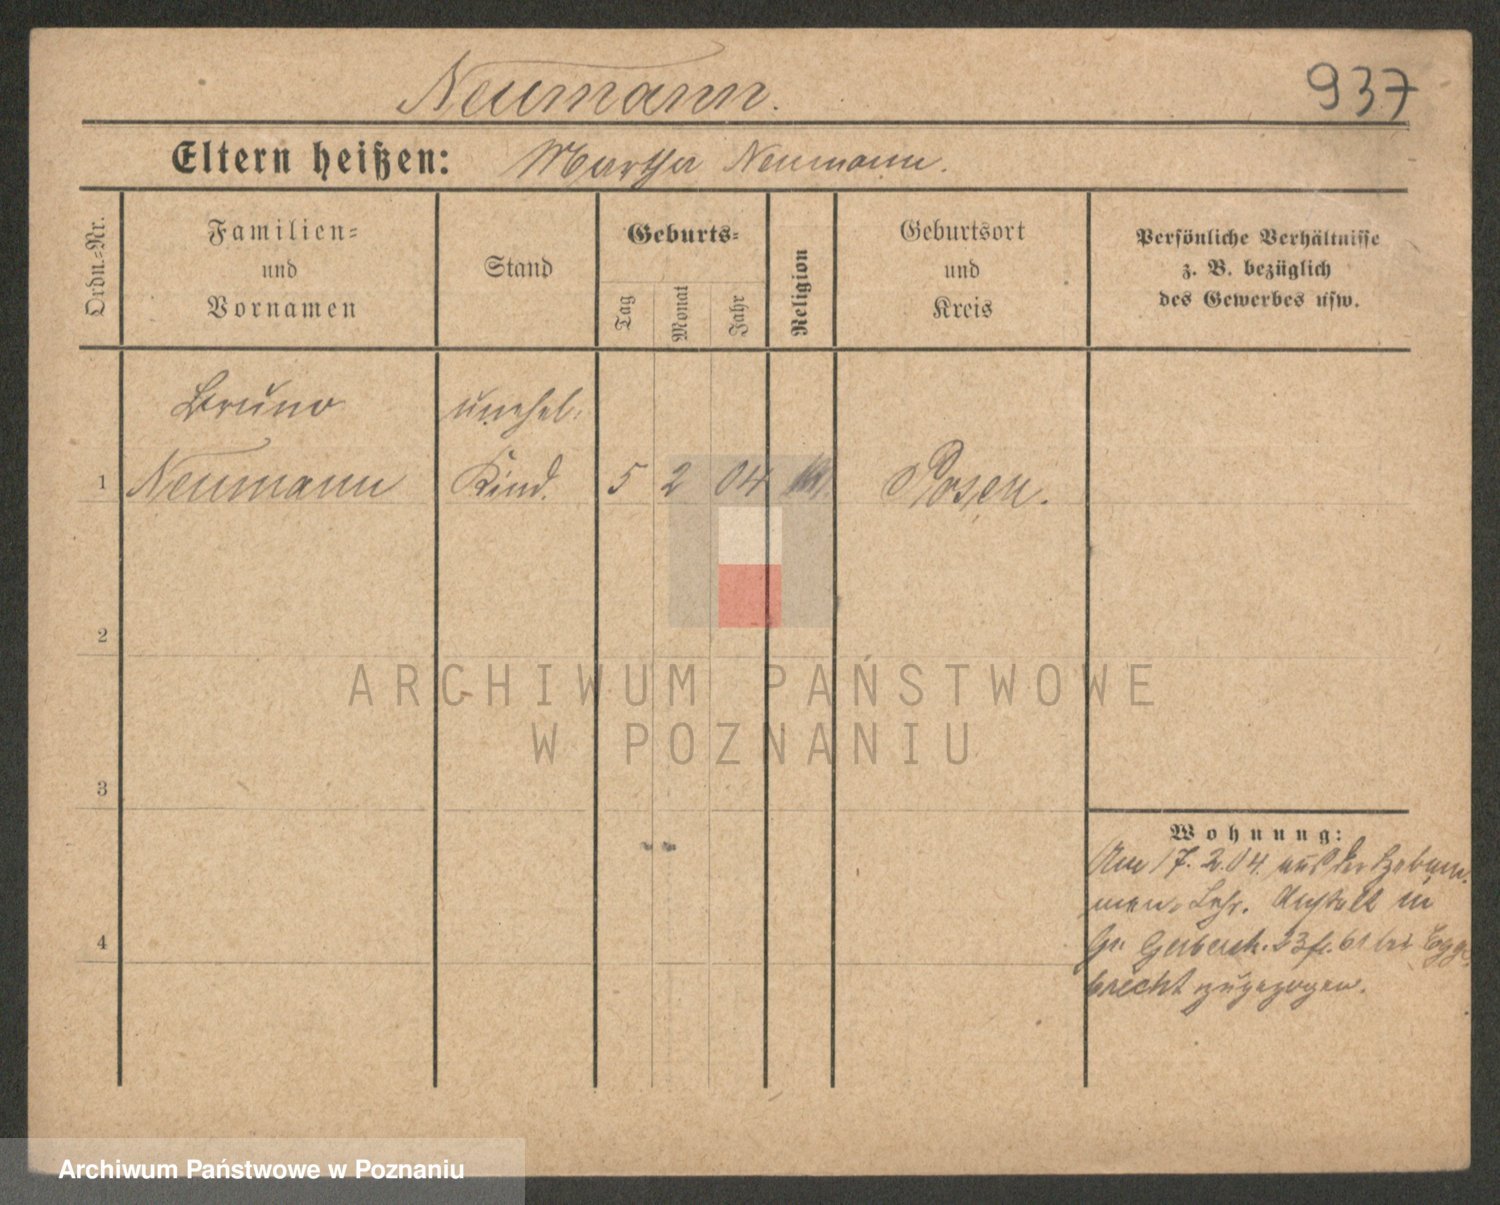 Neumann.
937
Eltern heißen: Martha Neumann.
Ordn.-Nr.
Familien-
und
Vornamen
Stand
Geburts-
Tag
Monat
Jahr
Religion
Geburtsort
und
Kreis
Persönliche Verhältnisse
z. B. bezüglich
des Gewerbes usw.
Bruno unehel.
1 Neumann Kind. 5 2 04 Posen.
2
3
4
Wohnung:
Am 17.2.04. aus der Hebam-
men-Lehr. Anstalt in
Gr. Gerberstr. 23 bei Egge-
brecht zugezogen.
ARCHIWUM PAŃSTWOWE
W POZNANIU
Archiwum Państwowe w Poznaniu